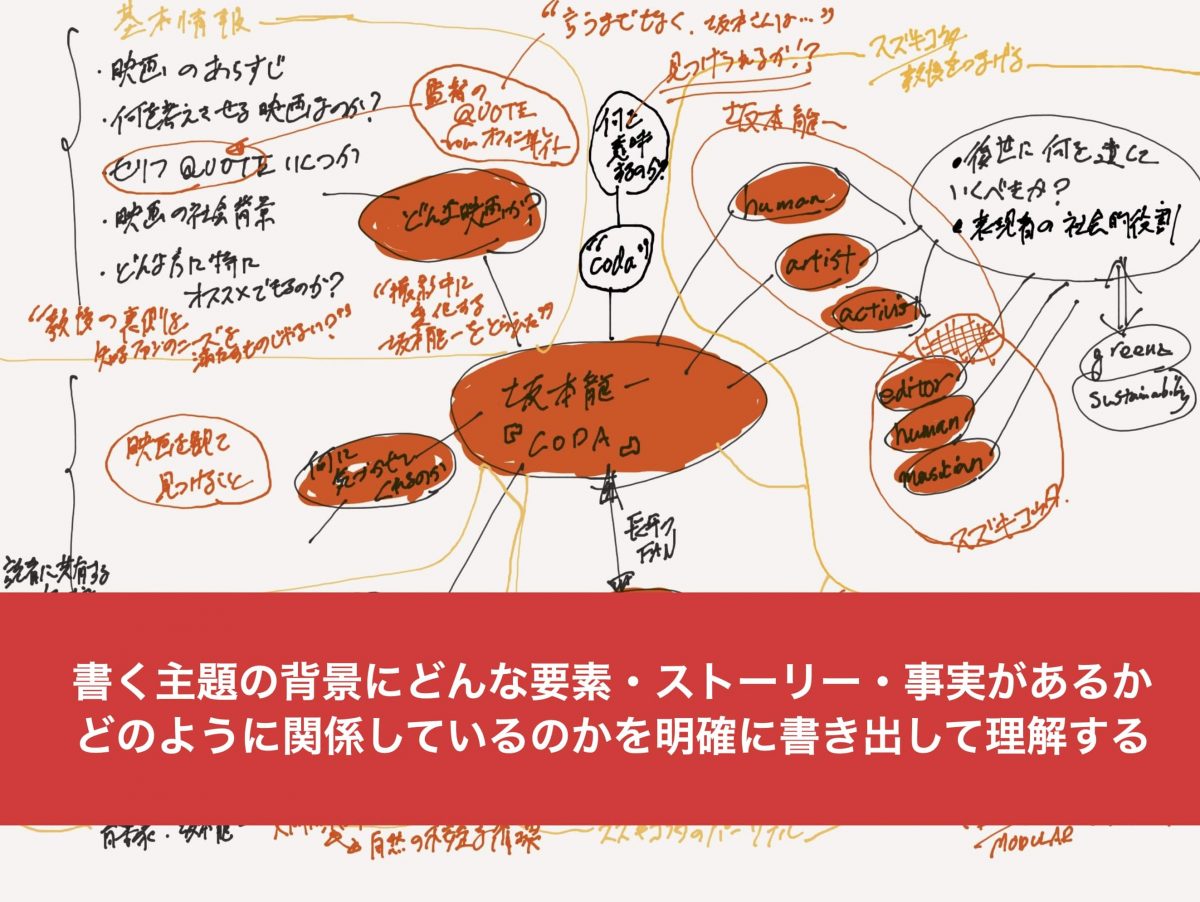 基本情報
・映画のあらすじ
・何を考えさせる映画なのか?
・セリフ QUOTE いくつか
・映画の社会背景
・どんな方に特に
オススメできるのか?
監督の
QUOTE
from オフィシャルサイト
“言うまでもなく、坂本さんは…”
見つけられるか!?
スズキコウタ
どんな映画か?
何を
意味
するのか?
“coda”
坂本龍一
human
artist
activist
・後世に何を遺して
いくべきか?
・表現者の社会的役割
greenz
sustainability
editor
human
スズキコウタ
“撮影中に
変化する
坂本龍一を
坂本龍一
『CODA』
長年の
FAN
映画を観て
見つけること
何に
気づかせて
くれるのか
読者に共有する
書く主題の背景にどんな要素・ストーリー・事実があるか
どのように関係しているのかを明確に書き出して理解する
自然の
MODULAR